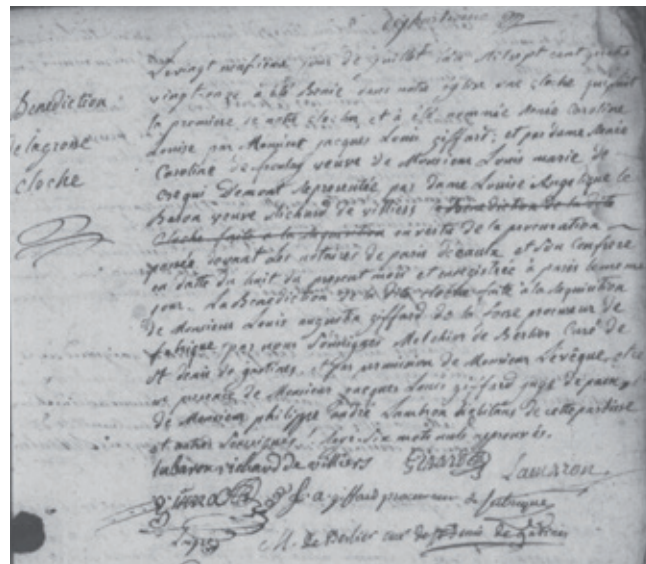 Benediction
de la grosse
cloche
Le vingt neufieme jour de juillet l'an mil sept cent quatre
vingt onze a été Benie dans notre église une cloche
la premiere de notre clocher et a été nommée Marie Caroline
Louise par Monsieur jacques Louis giffard, et par dame Marie
Caroline de veuve de Monsieur Louis marie de
crequi representée par dame Louise Angelique le
Baron veuve Richard de villiers Benediction de la dite
cloche faite a la requisition en vertu de la procuration
passée devant les notaires de paris et son confrere
en datte du huit du present mois et enregistrée a paris le meme
jour. La Benediction de la dite cloche faite a la requisition
de Monsieur Louis augustin giffard de la procureur de
fabrique par nous soussignés Melchior de Berlier Curé de
St denis de gatines, et par permission de Monsieur Levêque, et
en presence de Monsieur jacques Louis giffard juge de paix, et
de Monsieur philippe andré Lambron habitans de cette paroisse
et autres soussignés. six mots nuls
le baron richard de villiers
L. a. giffard procureur de fabrique
M. De Berlier curé de St denis de gatines